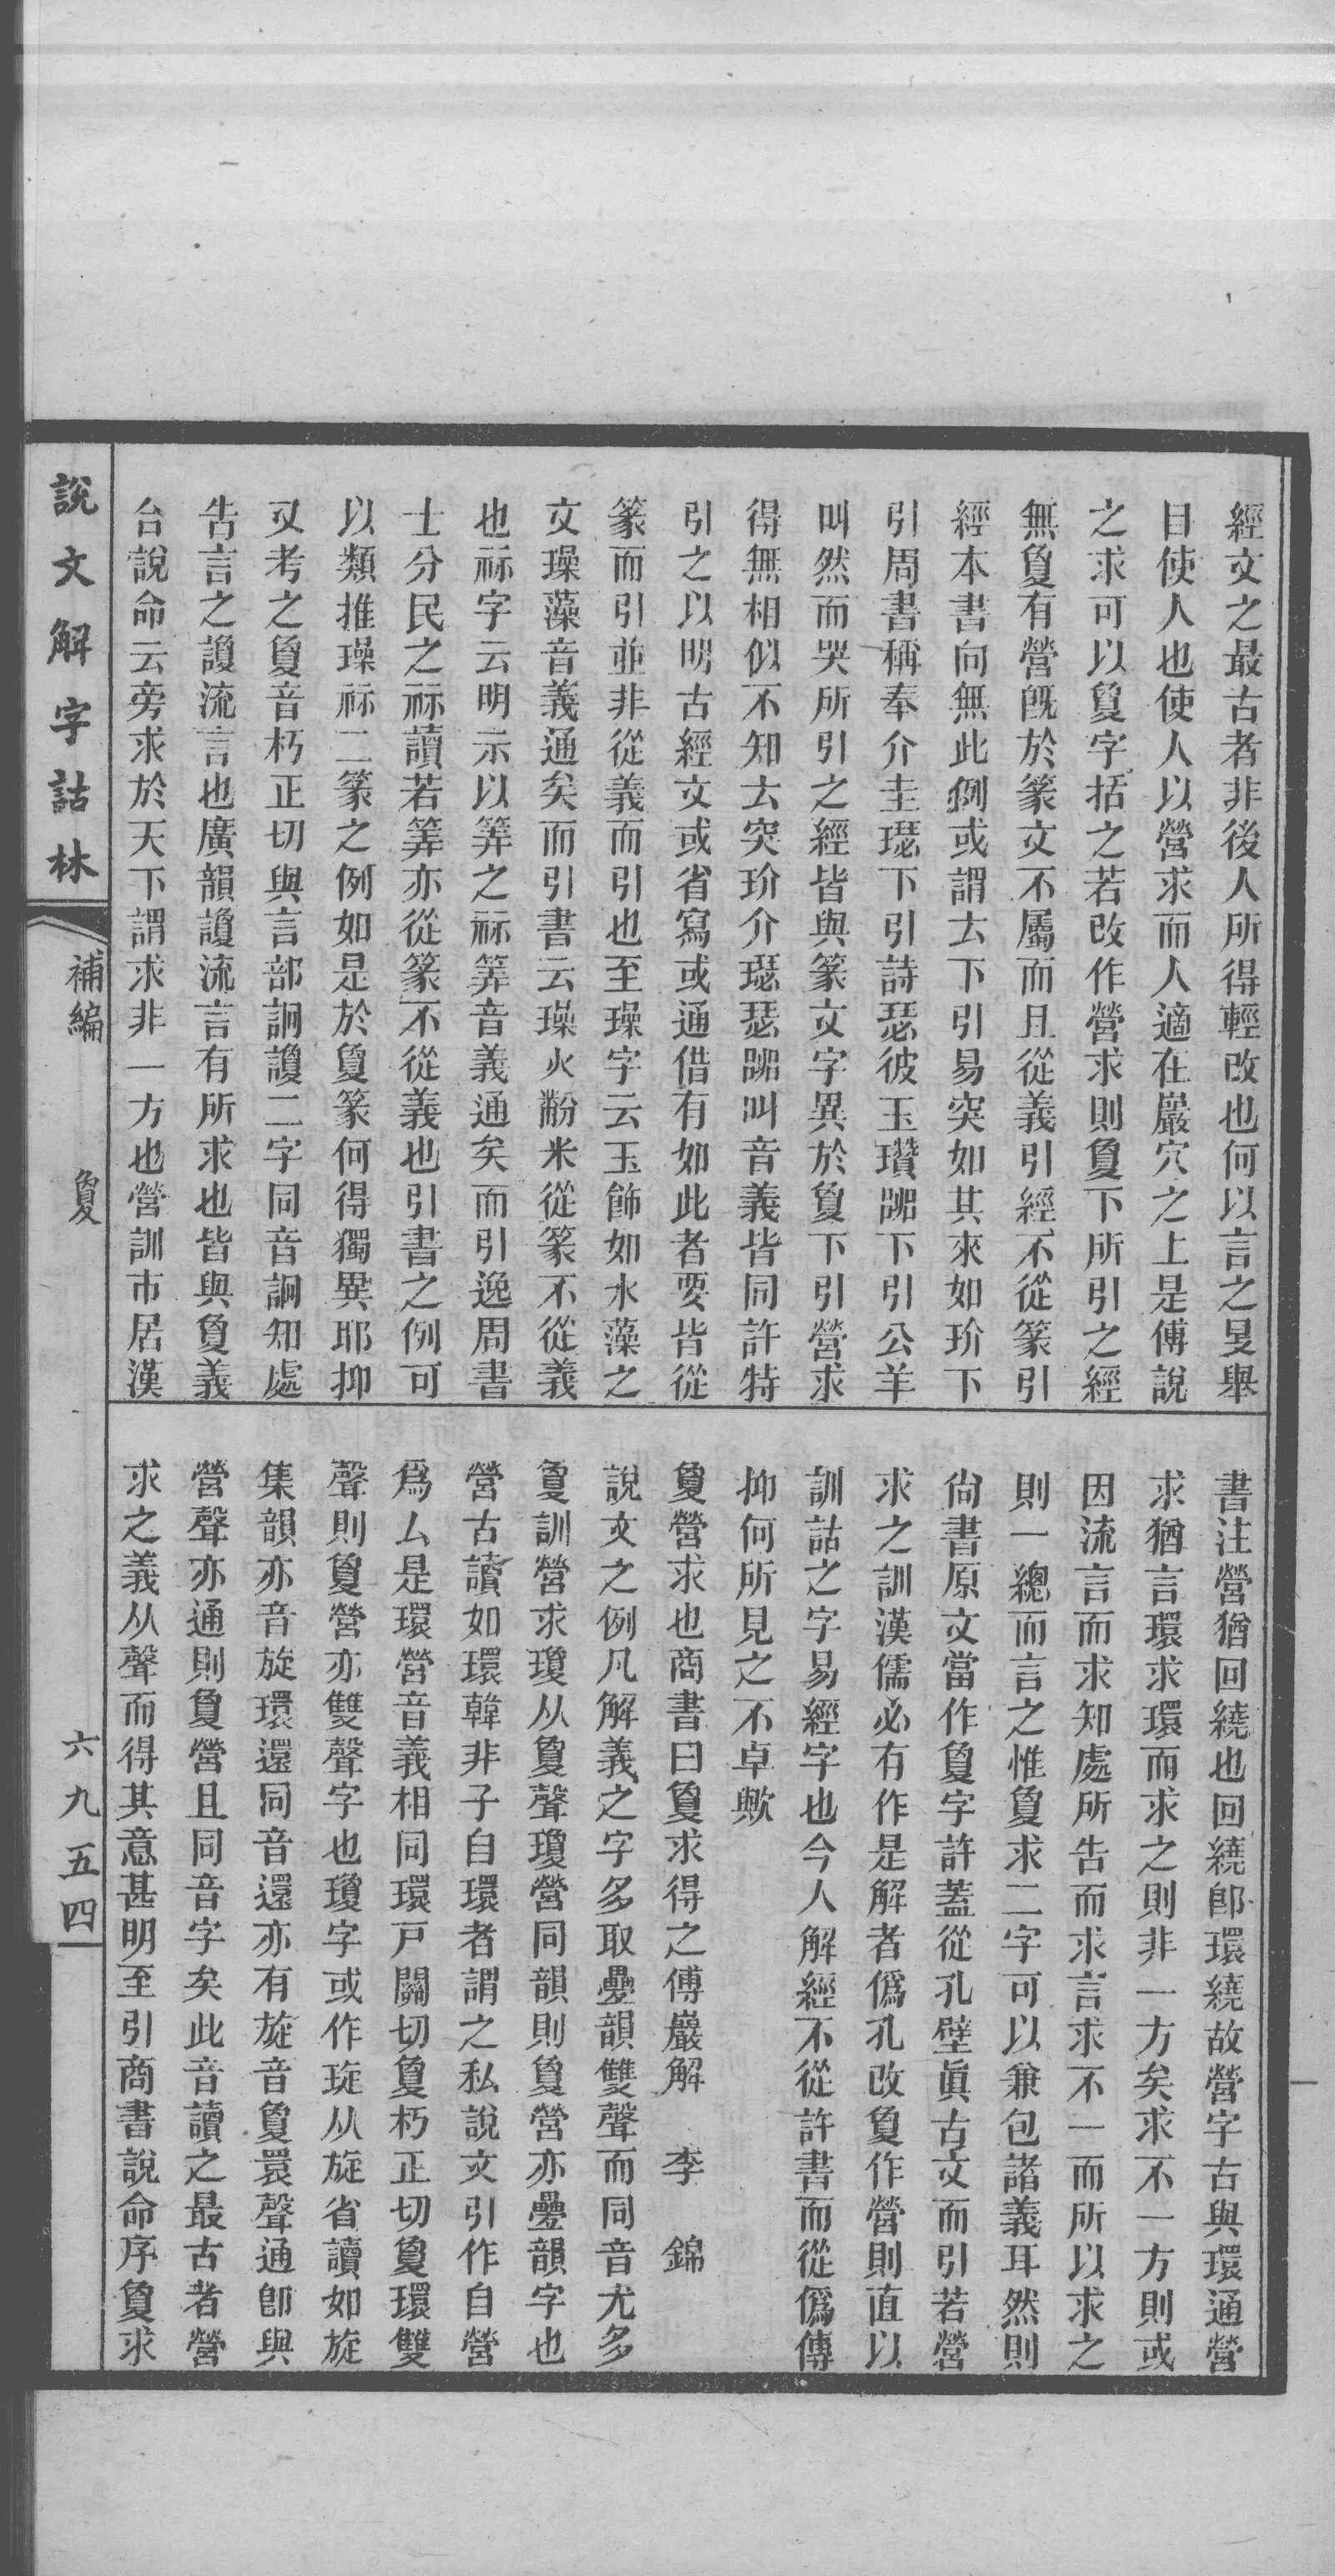 經文之最古者非後人所得輕改也何以言之𡕥舉
目使人也使人以營求而人適在巖穴之上是傅說
之求可以敻字括之若改作營求則敻下所引之經
無敻有營旣於篆文不屬而且從義引經不從篆引
經本書向無此例或謂𠫓下引易突如其來如玠下
引周書稱奉介圭璱下引詩瑟彼玉瓚䚯下引公羊
叫然而哭所引之經皆與篆文字異於敻下引營求
得無相似不知𠫓突玠介璱瑟䚯叫音義皆同許特
引之以明古經文或省寫或通借有如此者要皆從
篆而引並非從義而引也至璪字云玉飾如水藻之
文璪藻音義通矣而引書云璪火黺米從篆不從義
也祘字云明示以筭之祘筭音義通矣而引逸周書
士分民之祘讀若筭亦從篆不從義也引書之例可
以類推璪祘二篆之例如是於敻篆何得獨異耶抑
又考之敻音朽正切與言部詗讂二字同音詗知處
告言之讂流言也廣韻讂流言有所求也皆與敻義
合說命云旁求於天下謂求非一方也營訓帀居漢
書注營猶回繞也回繞卽環繞故營字古與環通營
求猶言環求環而求之則非一方矣求不一方則或
因流言而求知處所告而求言求不一而所以求之
則一總而言之惟敻求二字可以兼包諸義耳然則
尙書原文當作敻字許蓋從孔壁眞古文而引若營
求之訓漢儒必有作是解者僞孔改敻作營則直以
訓詁之字易經字也今人解經不從許書而從僞傳
抑何所見之不卓歟
敻營求也商書曰敻求得之傅巖解　李　錦
說文之例凡解義之字多取疊韻雙聲而同音尤多
敻訓營求瓊从敻聲瓊營同韻則敻營亦疊韻字也
營古讀如環韓非子自環者謂之私說文引作自營
爲厶是環營音義相同環戸關切敻朽正切敻環雙
聲則敻營亦雙聲字也瓊字或作琁从旋省讀如旋
集韻亦音旋環還同音還亦有旋音敻瞏聲通卽與
營聲亦通則敻營且同音字矣此音讀之最古者營
求之義从聲而得其意甚明至引商書說命序敻求
說文解字詁林
補編
敻
六九五四